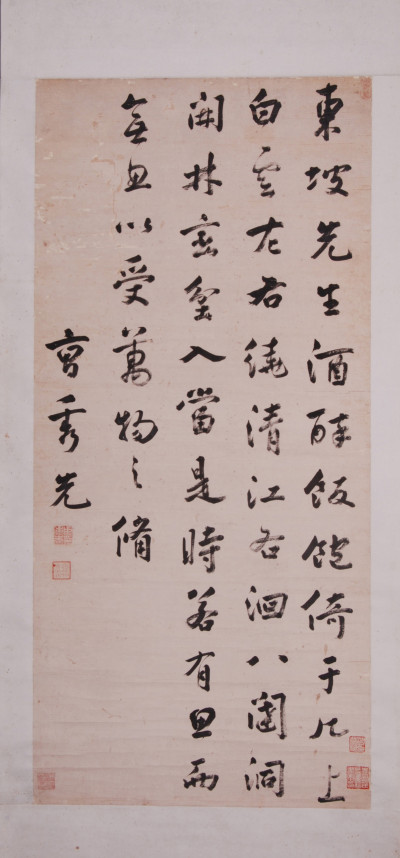 東坡先生酒醉飯飽倚于几上
白雲左右繞清江右洄八闥洞
開林巒坌入當是時若有思而
無思以受萬物之備
曹秀先